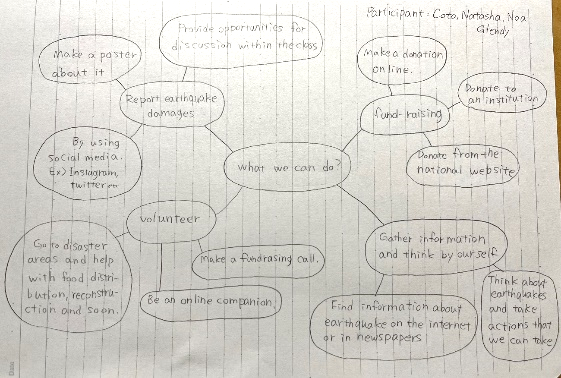 Participant: Coto, Natasha, Noa
Giendy
Provide opportunities for
discussion within the class
Make a poster
about it
Report earthquake
damages
By using
social media.
Ex) Instagram,
twitter etc
Make a donation
online.
fund-raising
Donate to
an institution
Donate from the
national website
What we can do?
volunteer
Go to disaster
areas and help
with food distri-
bution, reconstru-
ction and so on.
Make a fundrasing call.
Be an online companion.
Gather information
and think by ourself
Find information about
earthquake on the internet
or in newspapers
Think about
earthquakes
and take
actions that
we can take